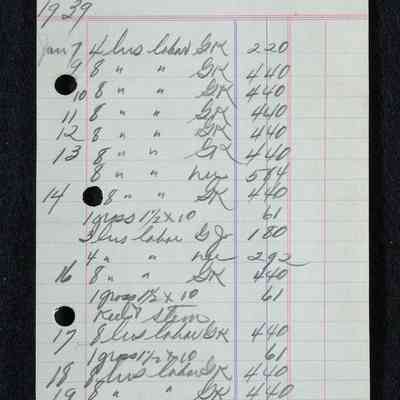 1939
Jan 7 4 hrs labor GK 220
9 8 " " GK 440
10 8 " " GK 440
11 8 " " GK 440
12 8 " " GK 440
13 8 " " GK 440
8 " " 584
14 8 " " GK 440
1 gross 1 1/2 x 10 61
3 hrs labor G Jr 180
4 " " 292
16 8 " " GK 440
1 gross 1 1/2 x 10 61
stem
17 8 hrs labor GK 440
1 gross 1 1/2 x 10 61
18 8 hrs labor GK 440
19 8 " " GK 440